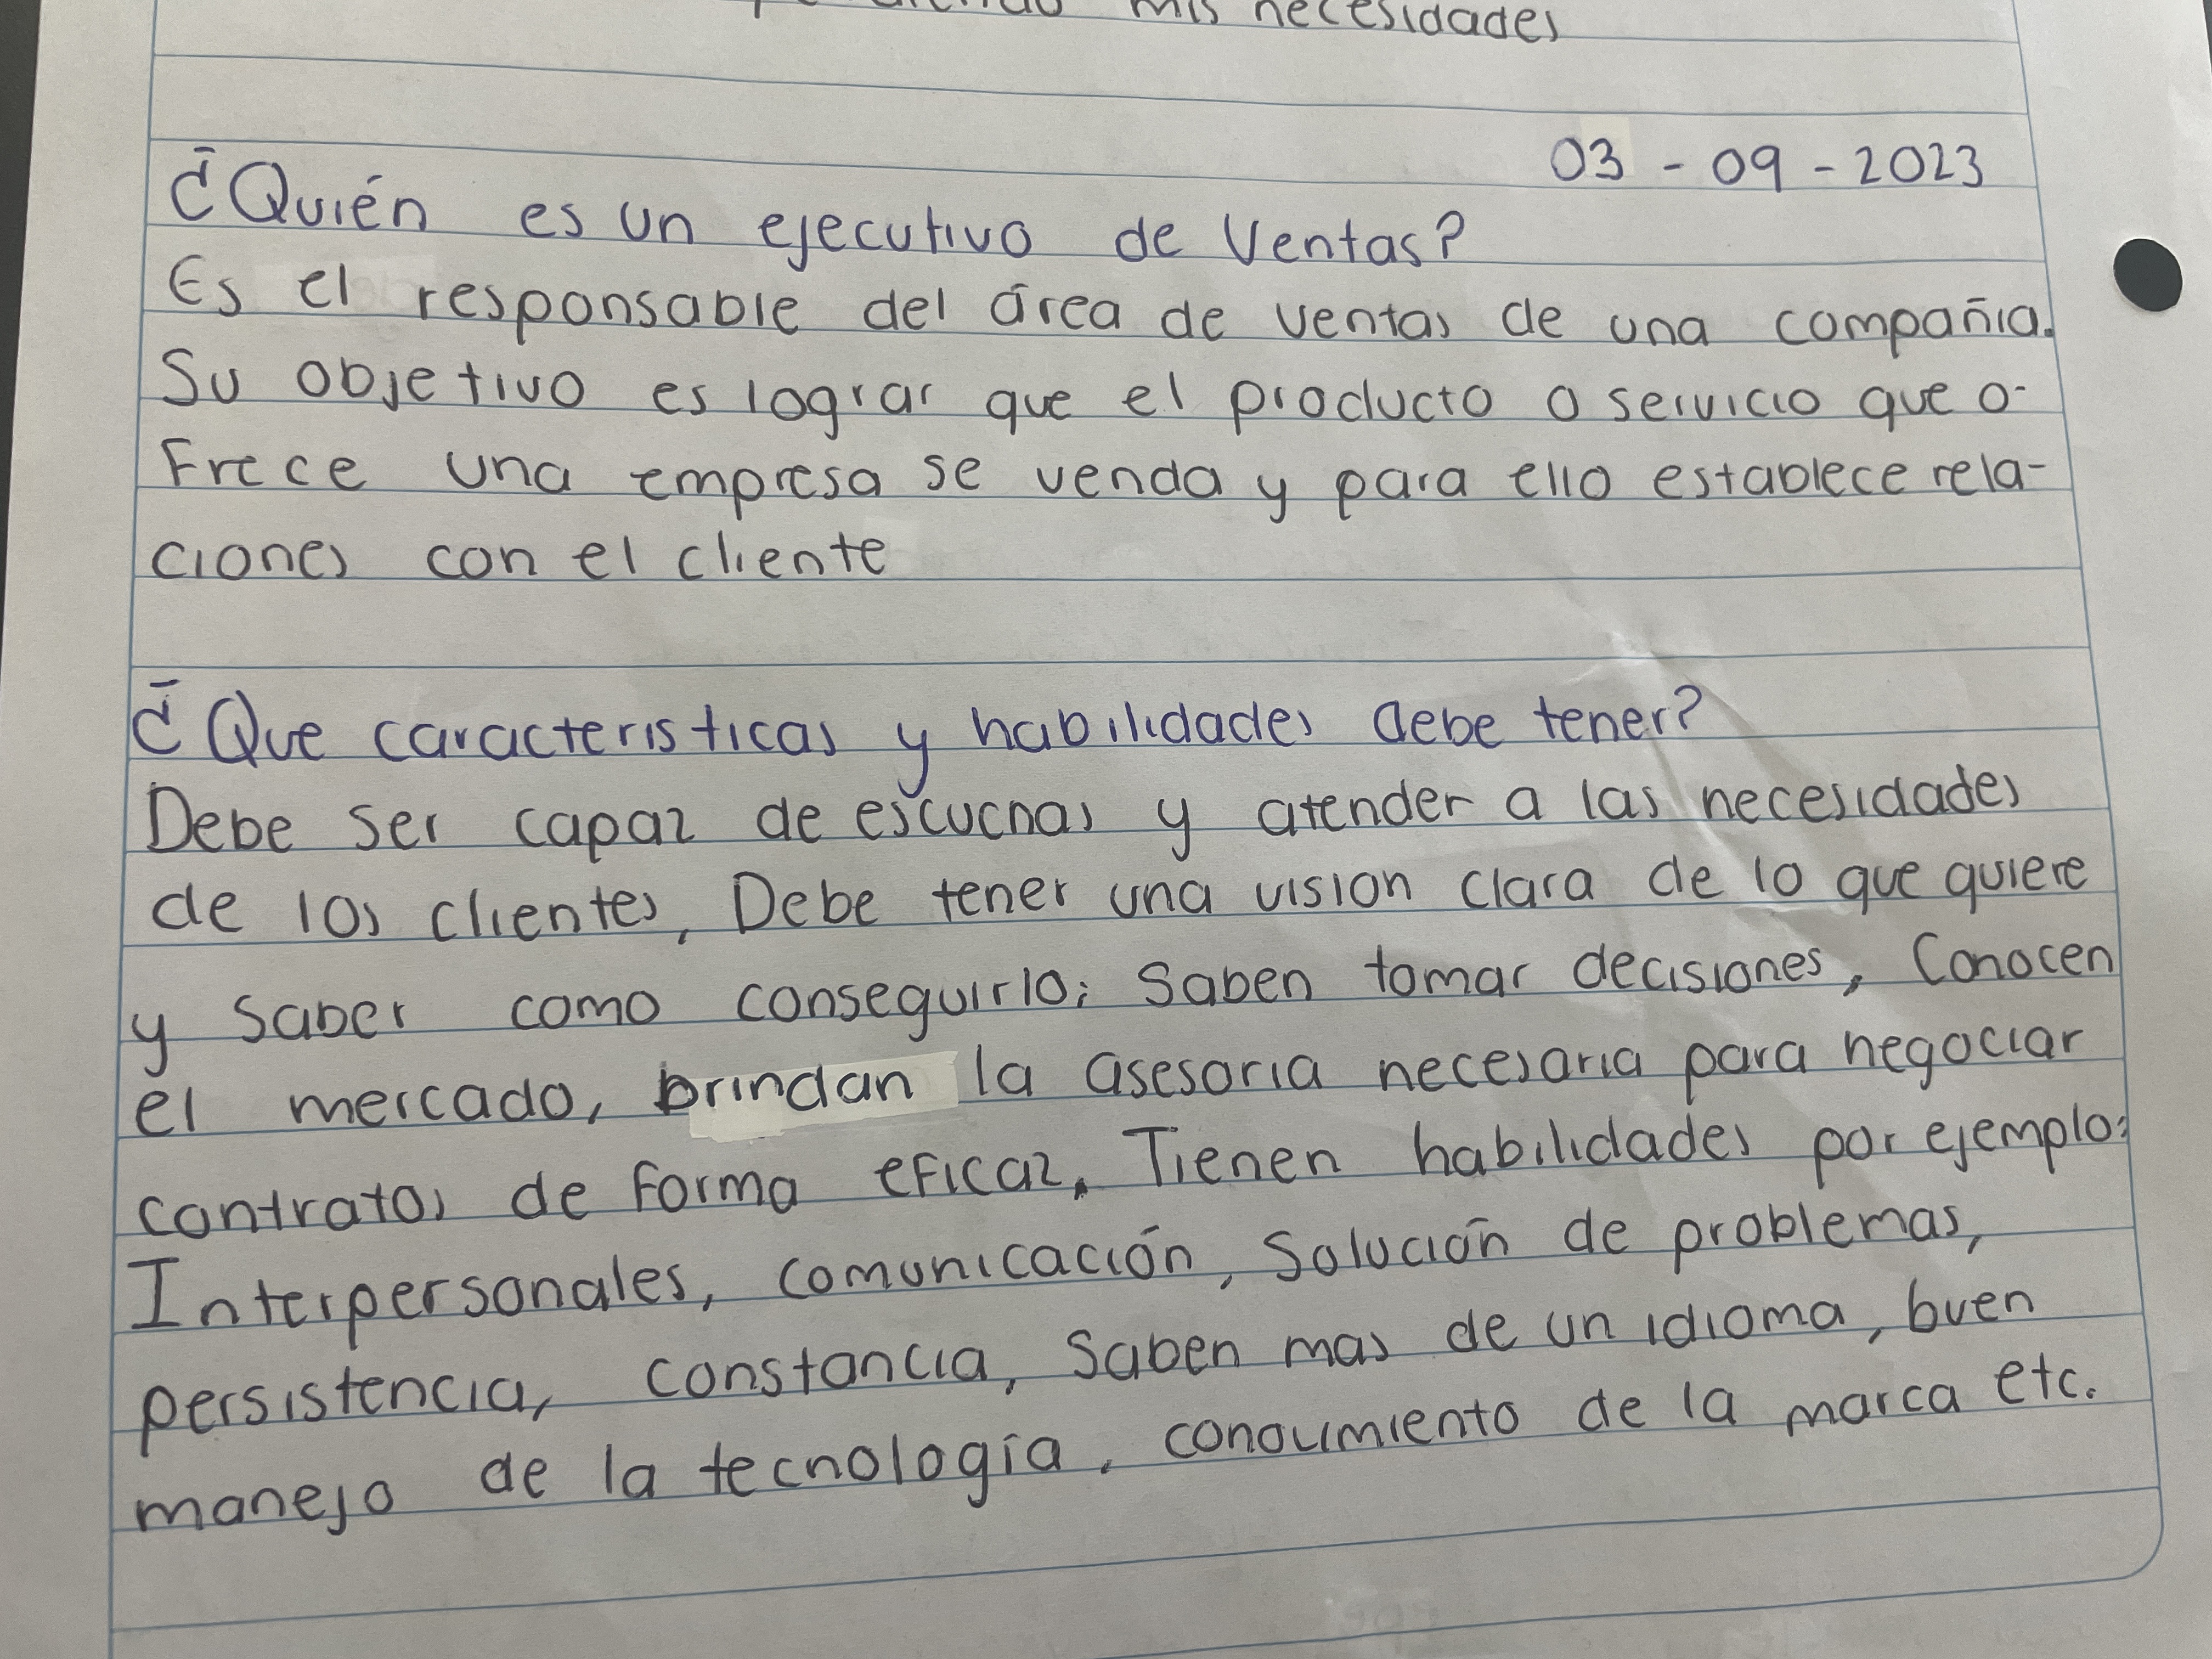 mis necesidades
03 - 09 - 2023
¿Quién es un ejecutivo de Ventas?
Es el responsable del área de ventas de una compañia.
Su objetivo es lograr que el producto o servicio que o-
frece una empresa se venda y para ello establece rela-
ciones con el cliente
¿Que caracteristicas y habilidades debe tener?
Debe ser capaz de escuchas y atender a las necesidades
de los clientes, Debe tener una vision clara de lo que quiere
y saber como conseguirlo; Saben tomar decisiones, Conocen
el mercado, brindan la asesoria necesaria para negociar
contratos de forma eficaz. Tienen habilidades por ejemplo:
Interpersonales, comunicación, Solución de problemas,
persistencia, constancia, Saben mas de un idioma, buen
manejo de la tecnología, conocimiento de la marca etc.